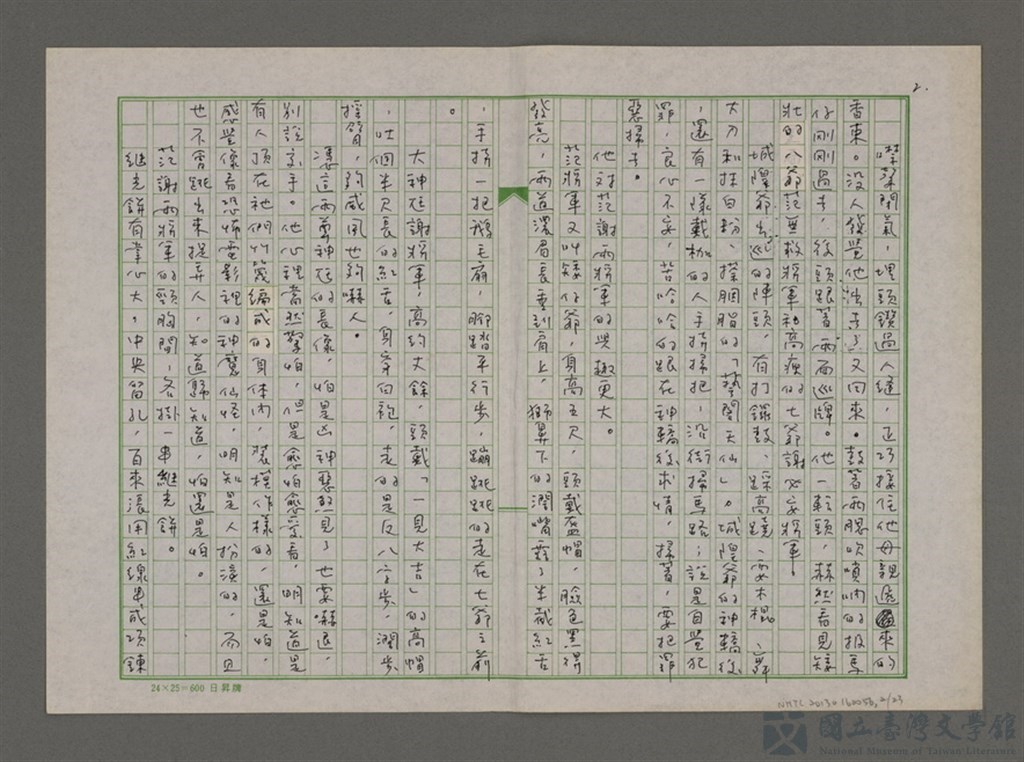 2.
嘩開氣,埋頭鑽過人縫,正巧接住他母親遞來的
香束。没人發覺他溜走了又回來。鼓著兩腮吹嗩吶的報馬
仔剛剛過去,後頭跟著兩面巡牌。他一轉頭,赫然看見矮
壯的八爺范無救將軍和高瘦的七爺謝必安將軍。
城隍爺出巡的陣頭,有打鑼鼓、踩高蹺、耍木棍、舞
大刀和抹白粉、搽胭脂的「藝閣天仙」。城隍爺的神轎後
,還有一樣戴枷的人手持掃把,沿街掃馬路;說是自覺犯
罪,良心不安,苦哈哈的跟在神轎後求情,掃著,要把罪
惡掃去。
他对范謝兩將軍的興趣更大。
范將軍又叫矮仔爺,身高五尺,頭戴盔帽,臉色黑得
發亮,兩道濃眉長垂到肩上,獅鼻下的濶嘴露了半截紅舌
,手持一把鵝毛扇,腳踏平行步,蹦跳跳的走在七爺之前
。
大神尪謝將軍,高約丈餘,頭戴「一見大吉」的高帽
,吐個半尺長的紅舌,身穿白袍,走的是反八字步,濶步
搖臂,夠威風也夠嚇人。
憑這兩尊神尪的長像,怕是凶神惡煞見了也要嚇退,
別說郭手。他心裡當然擎怕,但是愈怕愈愛看,明知道是
有人頂在祂們竹篾編成的身体內,裝模作樣的,還是怕,
感覺像看恐怖電影裡的神魔仙怪,明知是人扮演的,而且
也不會跳出來捉弄人,知道歸知道,怕還是怕。
范謝兩將軍的頸胸間,各掛一串繼光餅。
繼光餅有掌心大,中央留孔,百來湊用紅線串成項鍊
24×25=600 日昇牌
NMTL 20130160056, 2/23
國立臺灣文學館
National Museum of Taiwan Literature